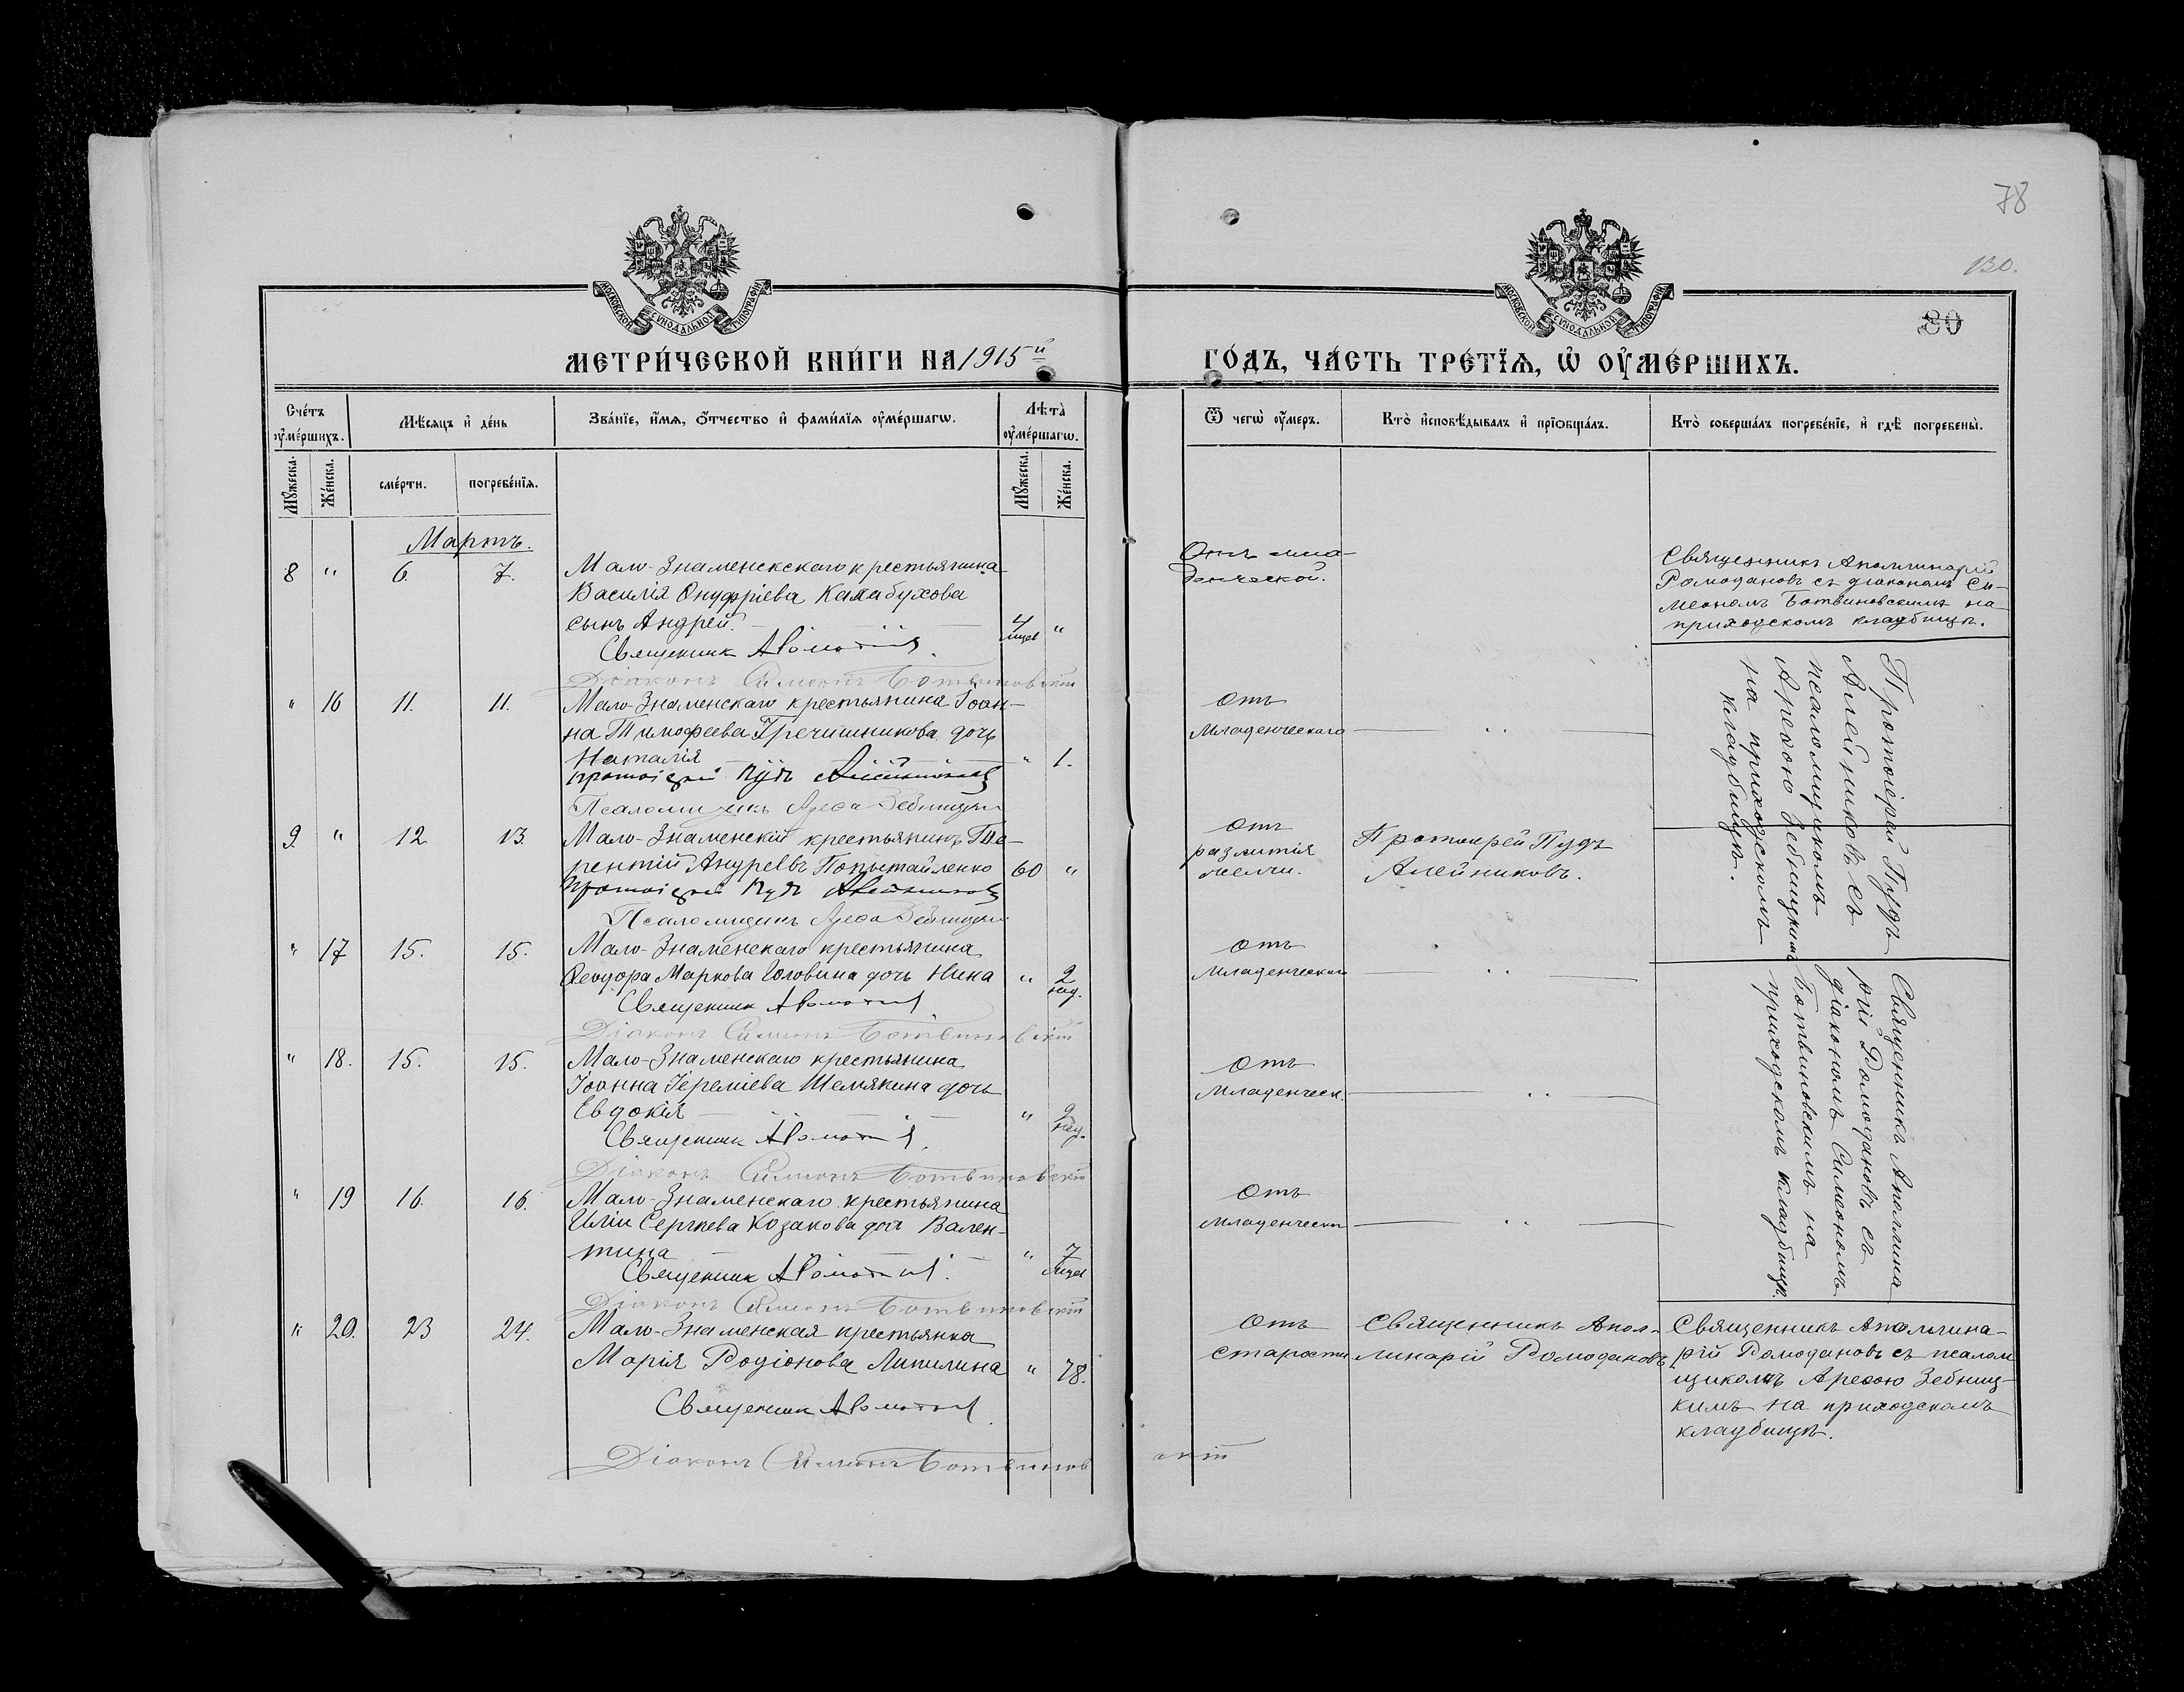 78
130.
80
МОСКОВСКОЙ СѴНОДАЛЬНОЙ ТИПОГРАФІИ
МОСКОВСКОЙ СѴНОДАЛЬНОЙ ТИПОГРАФІИ
МЕТРИ́ЧЕСКОЙ КНИ́ГИ НА 1915й
ГО́ДЪ, ЧА́СТЬ ТРЕ́ТЇѦ, Ѡ҆ ОУ҆МЕ́РШИХЪ.
Сче́тъ оу҆ме́ршихъ.
Мѣ́сяцъ и҆ де́нь
Зва́нїе, и҆́мя, ѻ҆́тчество и҆ фами́лїя оу҆ме́ршагѡ.
Лѣта̀ оу҆ме́ршагѡ.
Ѿ чегѡ̀ оу҆́меръ.
Кто̀ и҆сповѣ́дывалъ и҆ прїѻбща́лъ.
Кто̀ соверша́лъ погребе́нїе, и҆ гдѣ̀ погребены̀.
Мꙋ́жеска.
Же́нска.
сме́рти.
погребе́нїя.
Мꙋ́жеска.
Же́нска.
Мартъ.
8 " 6. 7.
Мало-Знаменскскаго крестьянина
Василія Онуфріева Калабухова
сынъ Андрей. 4 мѣс "
Священник
Діаконъ Симеонъ Ботвиновскій
Отъ мла-
денческой.
Священникъ Аполлинарій
Ромодановъ съ діакономъ Си-
меономъ Ботвиновскимъ на
приходскомъ кладбищѣ.
" 16 11. 11.
Мало-Знаменскаго крестьянина Іоан-
на Тимофеева Гречишникова дочь
Наталія " 1.
протоіерей Пудъ Алейниковъ
Псаломщикъ Арефа Зебницкій
Отъ
младенческаго
Протоіерей Пудъ
Алейниковъ съ
псаломщикомъ
Арефою Зебницкимъ
на приходскомъ
кладбищѣ.
9. " 12 13.
Мало-Знаменскій крестьянинъ Те-
рентій Андреевъ Попытайленко 60 "
Протоіерей Пудъ Алейниковъ
Псаломщикъ Арефа Зебницкій
Отъ
разлитія
желчи.
Протоіерей Пудъ
Алейниковъ.
" 17 15. 15.
Мало-Знаменскаго крестьянина
Ѳеодора Маркова Головина дочь Нина " 2 нед.
Священник
Діаконъ Симеонъ Ботвиновскій
Отъ
младенческаго
Священникъ Аполлина
рій Ромодановъ съ
діакономъ Симеономъ
Ботвиновскимъ на
приходскомъ кладбищѣ.
" 18. 15. 15.
Мало-Знаменскаго крестьянина
Іоанна Іереміева Шемякина дочь
Евдокія " 2 нед.
Священник
Діаконъ Симеонъ Ботвиновскій
Отъ
младенческ.
" 19 16. 16.
Мало-Знаменскаго крестьянина
Иліи Сергѣева Козакова доч Вален-
тина " 7 мѣс
Священник
Діаконъ Симеонъ Ботвиновскій
Отъ
младенческ
" 20. 23 24.
Мало-Знаменская крестьянка
Марія Родіонова Липилина " 78.
Священник
Діаконъ Симеонъ Ботвиновскій
Отъ
старости
Священникъ Апол-
линарій Ромодановъ
Священникъ Аполлина-
рій Ромодановъ съ псалом
щикомъ Арефою Зебниц-
кимъ на приходскомъ
кладбищѣ.